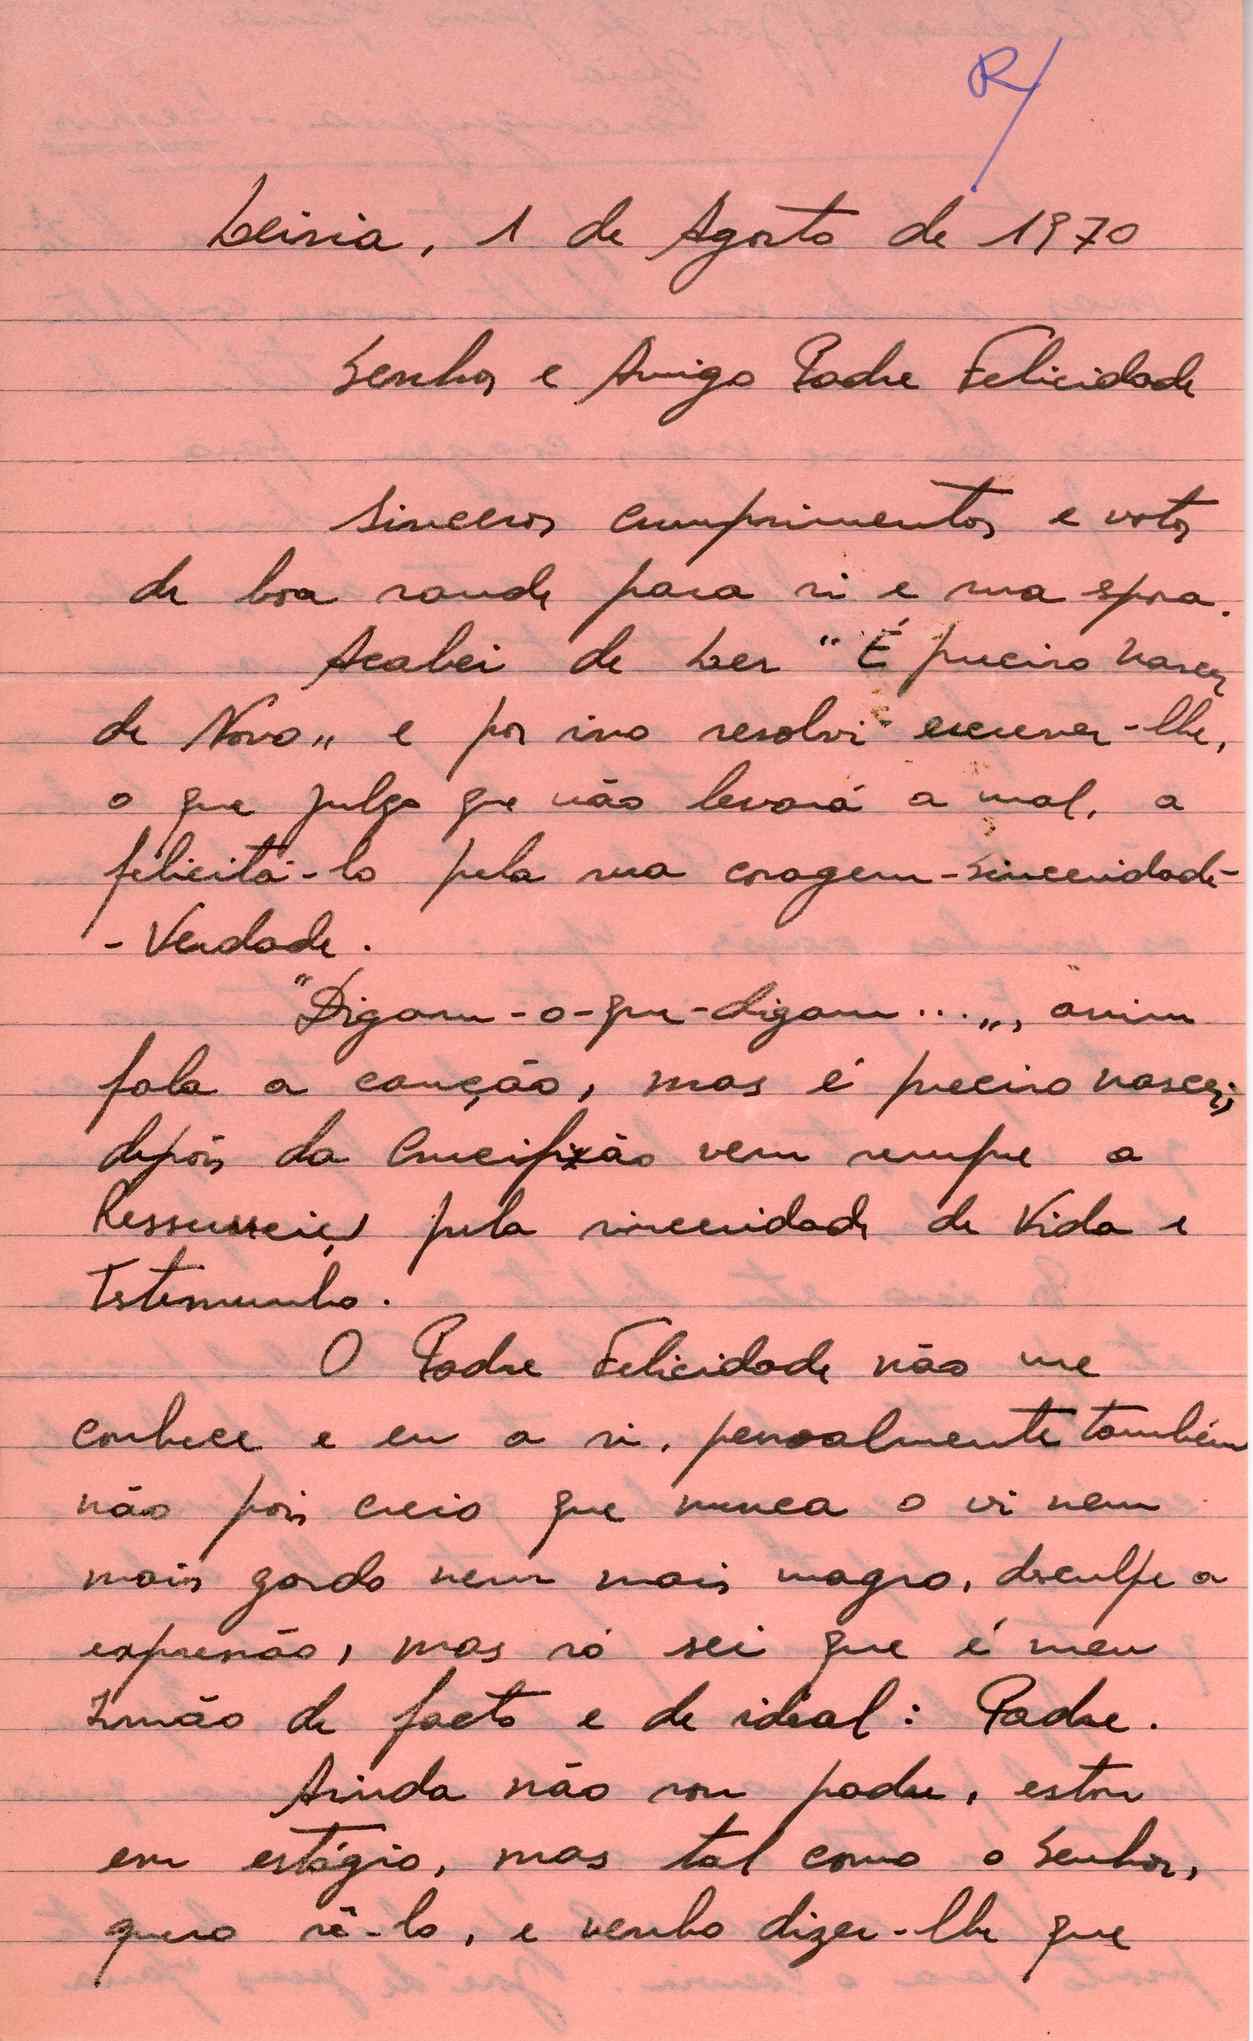 R/
Leiria, 1 de Agosto de 1970
Senhor e Amigo Padre Felicidade
Sinceros cumprimentos e votos
de boa saude para si e sua espôsa.
Acabei de Ler "É preciso Nascer
de Novo„ e por isso resolvi escrever-lhe,
o que julgo que não levará a mal, a
felicitá-lo pela sua coragem-sinceridade-
- Verdade.
"Digam-o-que-digam...„, assim
fala a canção, mas é preciso nascer;
depois da Crucifixão vem sempre a
pela sinceridade de Vida e
Testemunho.
O Padre Felicidade não me
conhece e eu a si, pessoalmente também
não pois creio que nunca o vi nem
mais gordo nem mais magro, desculpe a
expressão, mas só sei que é meu
Irmão de facto e de ideal: Padre.
Ainda não sou padre, estou
em estágio, mas tal como o Senhor,
quero sê-lo, e venho dizer-lhe que